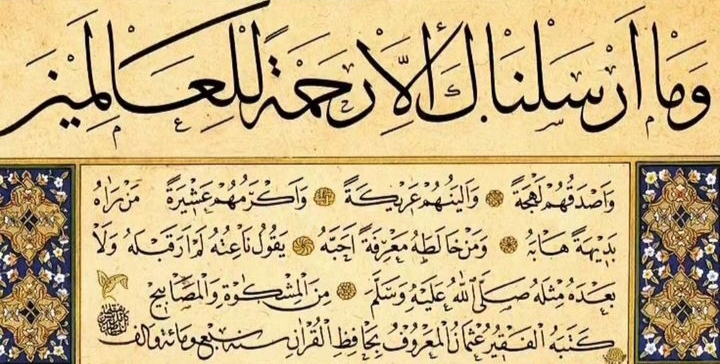 وَمَا أَرْسَلْنَاكَ إِلَّا رَحْمَةً لِلْعَالَمِينَ
وَأَصْدَقُهُمْ لَهْجَةً وَأَلْيَنُهُمْ عَرِيكَةً وَأَكْرَمُهُمْ عَشِيرَةً مَنْ رَآهُ
بَدِيهَةً هَابَهُ وَمَنْ خَالَطَهُ مَعْرِفَةً أَحَبَّهُ يَقُولُ نَاعِتُهُ لَمْ أَرَ قَبْلَهُ وَلَا
بَعْدَهُ مِثْلَهُ صَلَّى اللهُ عَلَيْهِ وَسَلَّمَ مِنَ الْمِشْكٰوةِ وَالْمَصَابِيحِ
كَتَبَهُ الْفَقِيرُ عُثْمَانُ الْمَعْرُوفُ بِحَافِظِ الْقُرْآنِ سنة سبع ومائة وألف